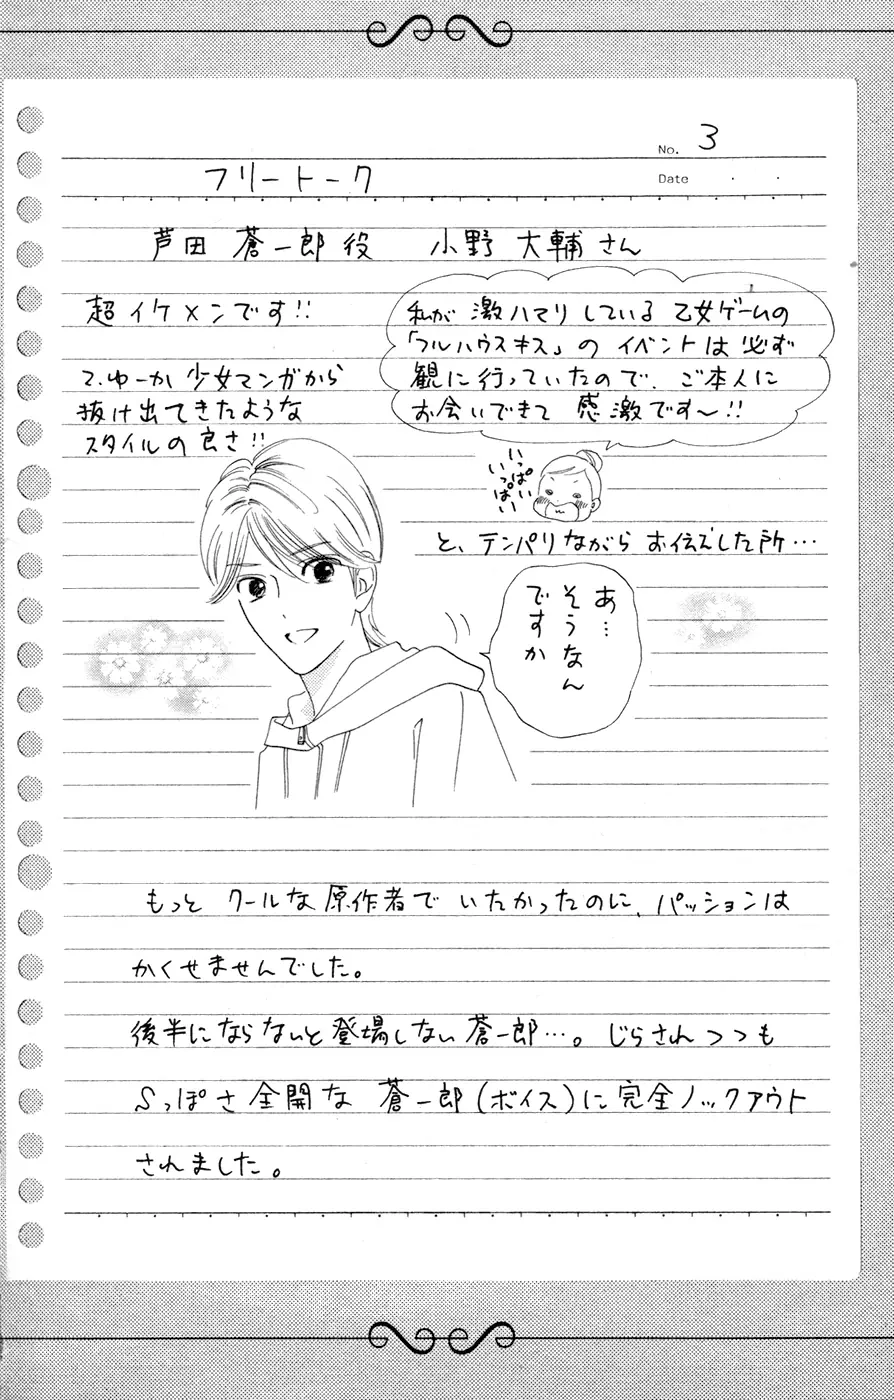 No. 3
フリートーク
Date ・ ・
芦田 蒼一郎役 小野 大輔さん
超イケメンです!!
て、ゆーか 少女マンガから
抜け出てきたような
スタイルの良さ!!
私が 激ハマリしている 乙女ゲームの
「フルハウスキス」の イベントは必ず
観に行っていたので、ご本人に
お会いできて 感激です〜!!
いっぱい
いっぱい
と、テンパリながら お伝えした所…
あ…
そうなん
ですか
もっと クールな原作者で いたかったのに、パッションは
かくせませんでした。
後半にならないと登場しない蒼一郎…。じらされつつも
Sっぽさ全開な 蒼一郎(ボイス)に完全ノックアウト
されました。